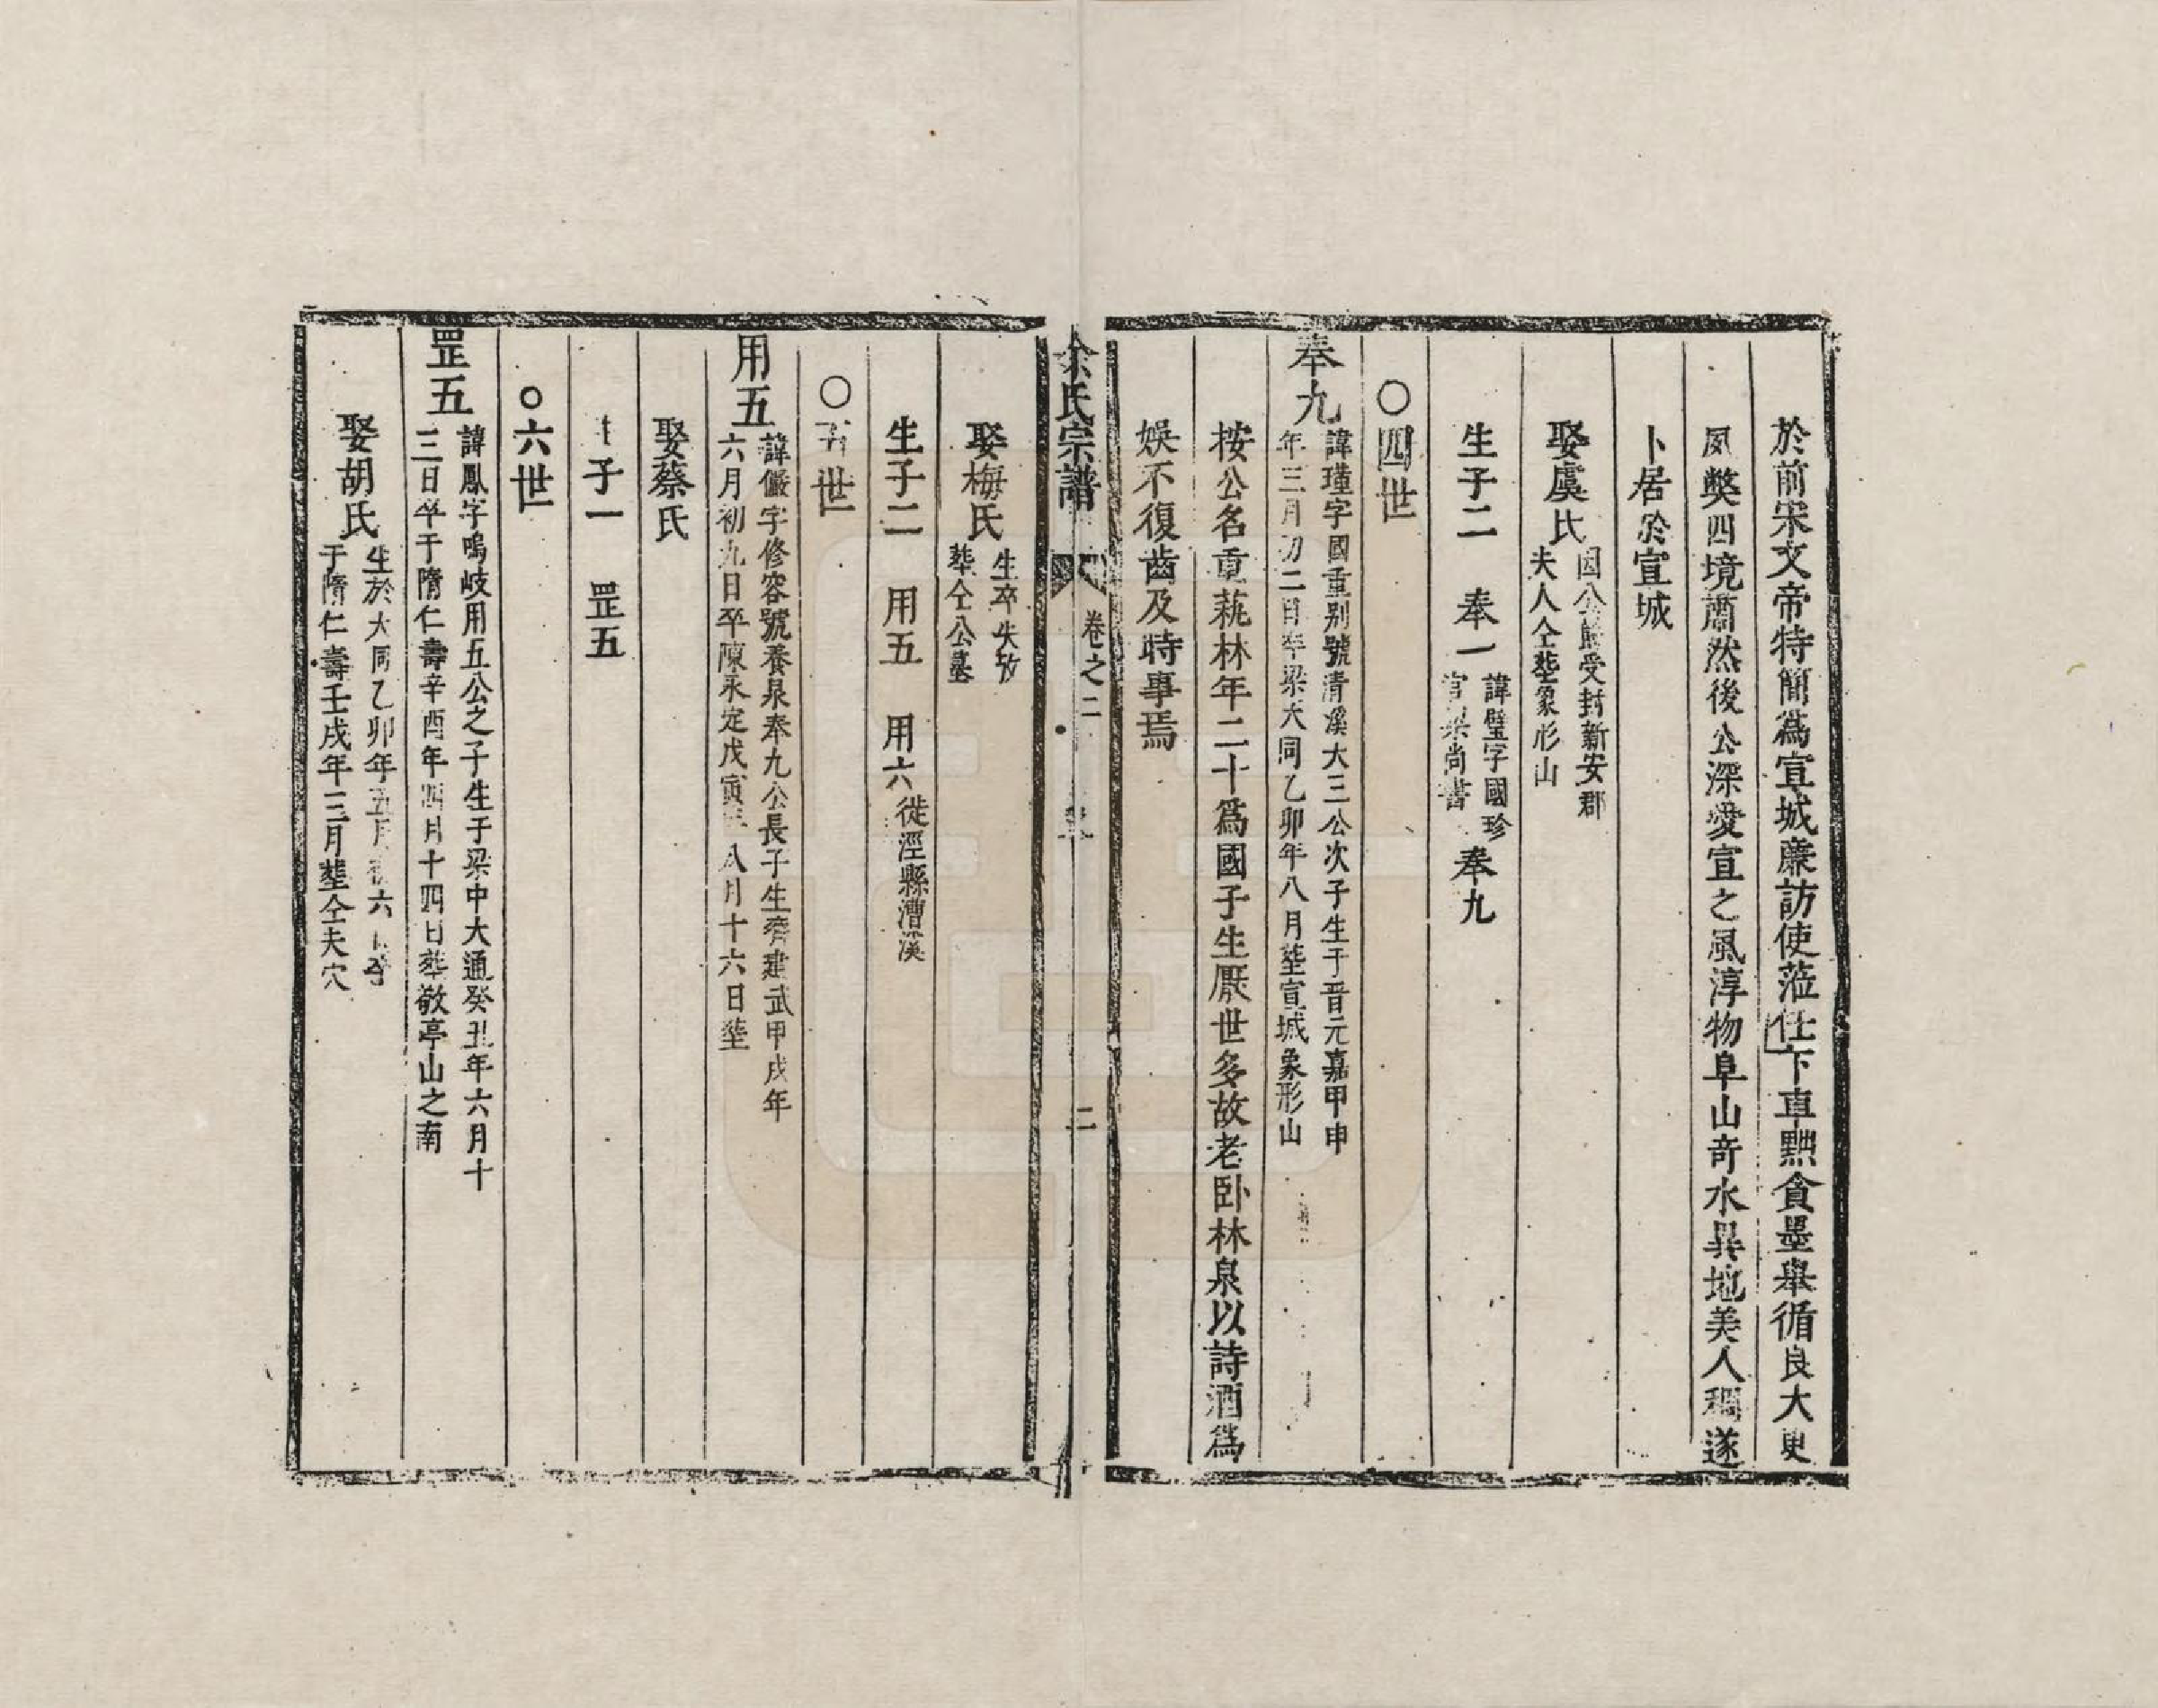 於前宋文帝特簡爲宣城廉訪使蒞仕下車黜貪墨舉循良大更
夙獘四境肅然後公深愛宣之風淳物阜山竒水異地美人稠遂
卜居於宣城
娶虞氏
因公受封新安郡
夫人仝塟象形山
生子二 奉一
諱璧字國珍
官梁尚書
奉九
○四世
奉九
諱瑾字國重别號清溪大三公次子生于晉元嘉甲申
年三月初二日卒梁大同乙卯年八月塟宣城象形山
按公名重蓺林年二十爲國子生厭世多故老卧林泉以詩酒爲
娛不復齒及時事焉
余氏宗譜 卷之二 二
娶梅氏
生卒失攷
塟仝公墓
生子二 用五 用六
徙涇縣漕溪
○五世
用五
諱儼字修容號養泉奉九公長子生齊建武甲戌年
六月初九日卒陳永定戊寅年八月十六日塟
娶蔡氏
生子一 罡五
○六世
罡五
諱鳳字鳴岐用五公之子生于梁中大通癸丑年六月十
三日卒于隋仁壽辛酉年四月十四日塟敬亭山之南
娶胡氏
生於大同乙卯年五月初六日卒
于隋仁壽壬戌年三月塟仝夫穴